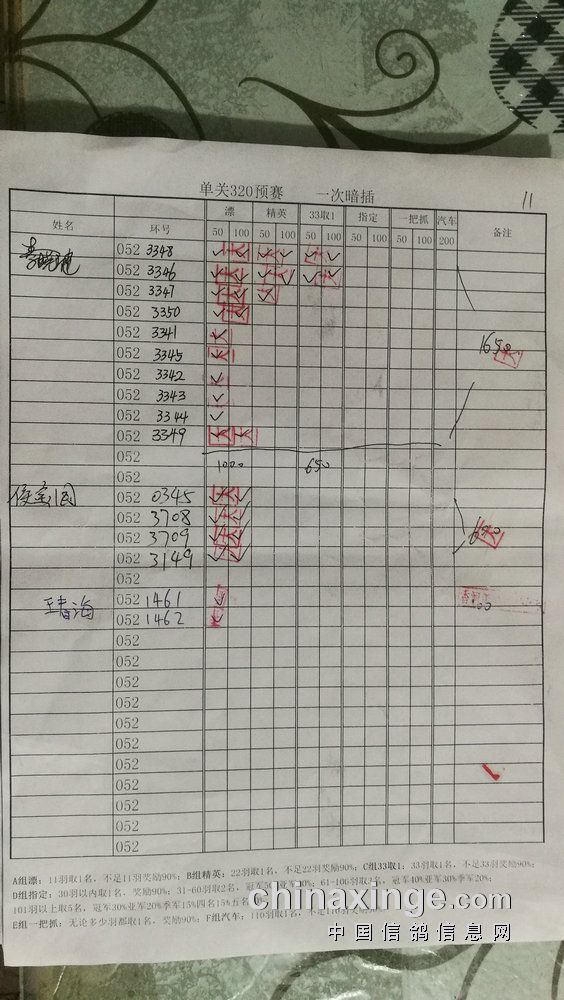 单关320预赛 一次暗插 11
姓名 环号 漂 精英 33取1 指定 一把抓 汽车 备注
50 100 50 100 50 100 50 100 50 100 200
052 3348
052 3346
052 3347
052 3350
052 3341
052 3345 1650
052 3342
052 3343
052 3344
052 3349
052 1000 650
052
052 0345
052 3708
052 3709
052 3149
052
052 1461
052 1462
052
052
052
052
052
052
052
052
052
052
052
A组漂：11羽取1名，不足11羽奖励90%；B组精英：22羽取1名，不足22羽奖励90%；C组33取1：33羽取1名，不足33羽奖励90%；
D组指定：30羽以内取1名，奖励90%；31-60羽取2名，冠军
101羽以上取5名，冠军30%亚军20%季军15%四名15%五名
E组一把抓：无论多少羽都取1名，奖励90%；F组汽车：110羽取1名，
chinaxinge.com
中国信鸽信息网